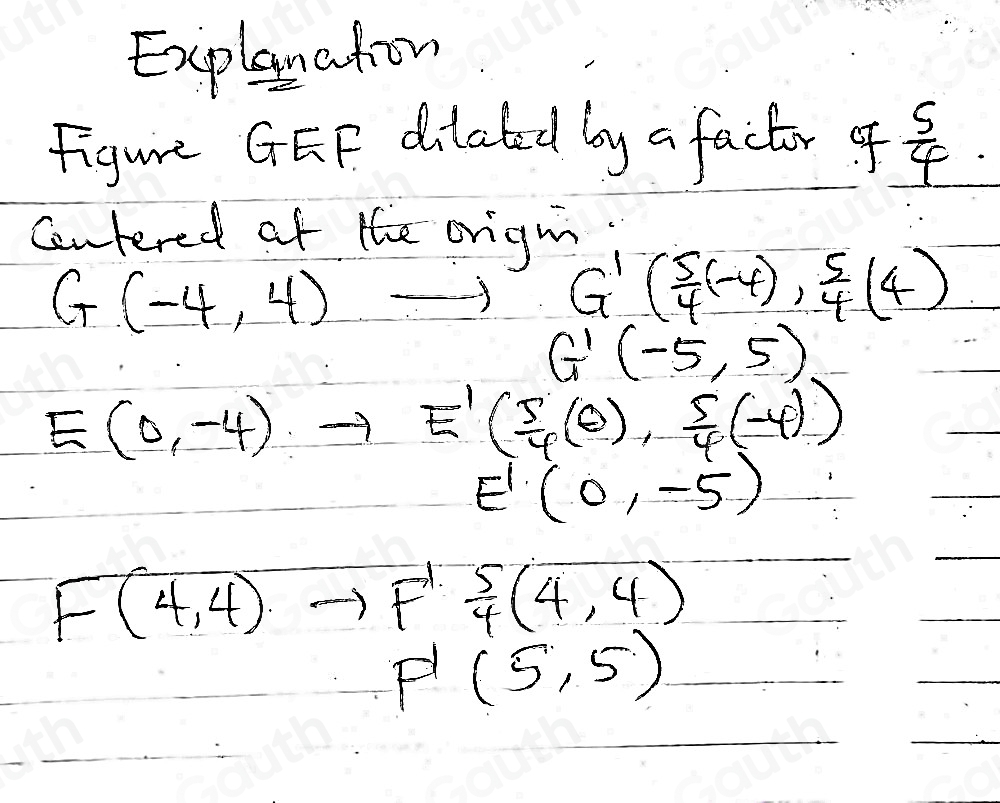 Explanation
Figure GEF dilated by a factor of 5/4.
Centered at the origin.
G (-4, 4) → G' (5/4(-4), 5/4(4)
G' (-5, 5)
E (0, -4) → E' (5/4(0), 5/4(-4))
E' (0, -5)
F (4,4) → F' 5/4 (4, 4)
F' (5, 5)